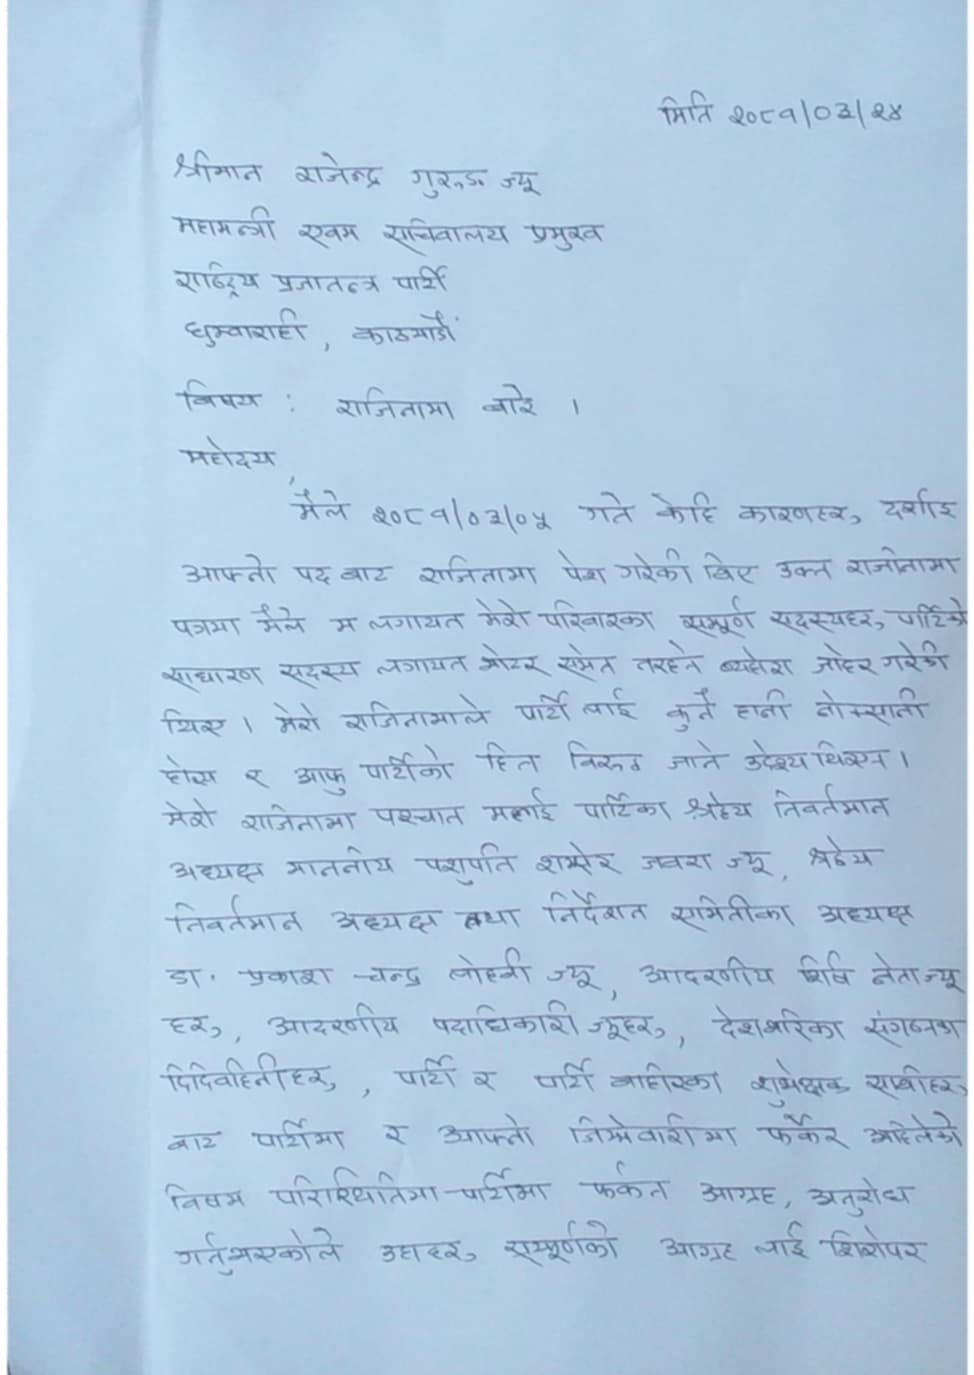 मिति २०८१/०३/२४
श्रीमान राजेन्द्र गुरुङ ज्यू
महामन्त्री एवम सचिवालय प्रमुख
राष्ट्रिय प्रजातन्त्र पार्टी
धुम्वाराही , काठमाडौं
विषय : राजिनामा बारे ।
महोदय,
मैले २०८१/०३/०५ गते केहि कारणहरु दर्शाइ
आफ्नो पद बाट राजिनामा पेश गरेकी थिए उक्त राजीनामा
पत्रमा मैले म लगायत मेरो परिवारका सम्पूर्ण सदस्यहरु पार्टिको
साधारण सदस्य लगायत भोटर समेत नरहने ब्यहोरा जाहेर गरेकी
थिए । मेरो राजिनामाले पार्टी लाई कुनै हानी नोक्सानी
होस र आफु पार्टीको हित विरुद्ध जाने उदेश्य थिएन ।
मेरो राजिनामा पश्चात मलाई पार्टिका श्रद्देय निवर्तमान
अध्यक्ष माननीय पशुपति शम्सेर जवरा ज्यू, श्रद्देय
निवर्तमान अध्यक्ष तथा निर्देशन समितीका अध्यक्ष
डा. प्रकाश चन्द्र लोहनी ज्यू, आदरणीय शिर्ष नेता ज्यू
हरु, आदरणीय पदाधिकारी ज्यूहरु, देशभरिका संगठनका
दिदिवहिनीहरु, पार्टी र पार्टी बाहीरका शुभेक्षक साथीहरु
बाट पार्टीमा र आफ्नो जिम्मेवारीमा फर्केर अहिलेको
विषम परिस्थितिमा पार्टीमा फर्कन आग्रह, अनुरोध
गर्नुभएकोले उहाहरु सम्पूर्णको आग्रह लाई शिरोपर